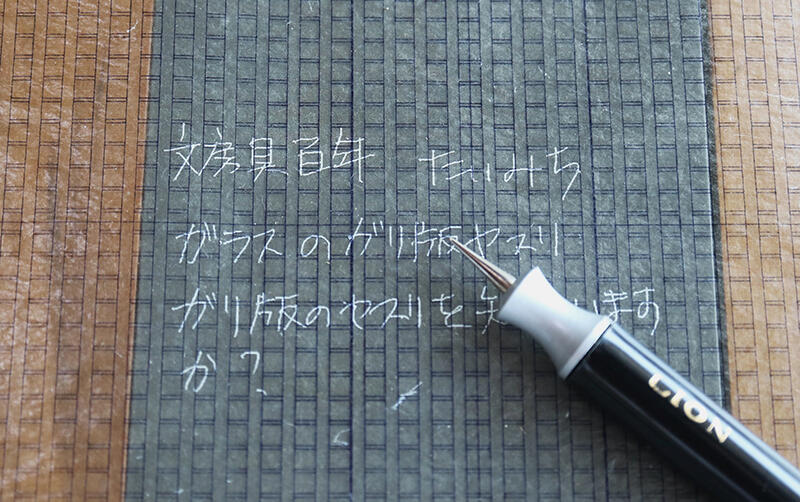 文房具百年 たいみち
ガラスのガリ版ヤスリ
ガリ版のヤスリを知 います
か?
LION